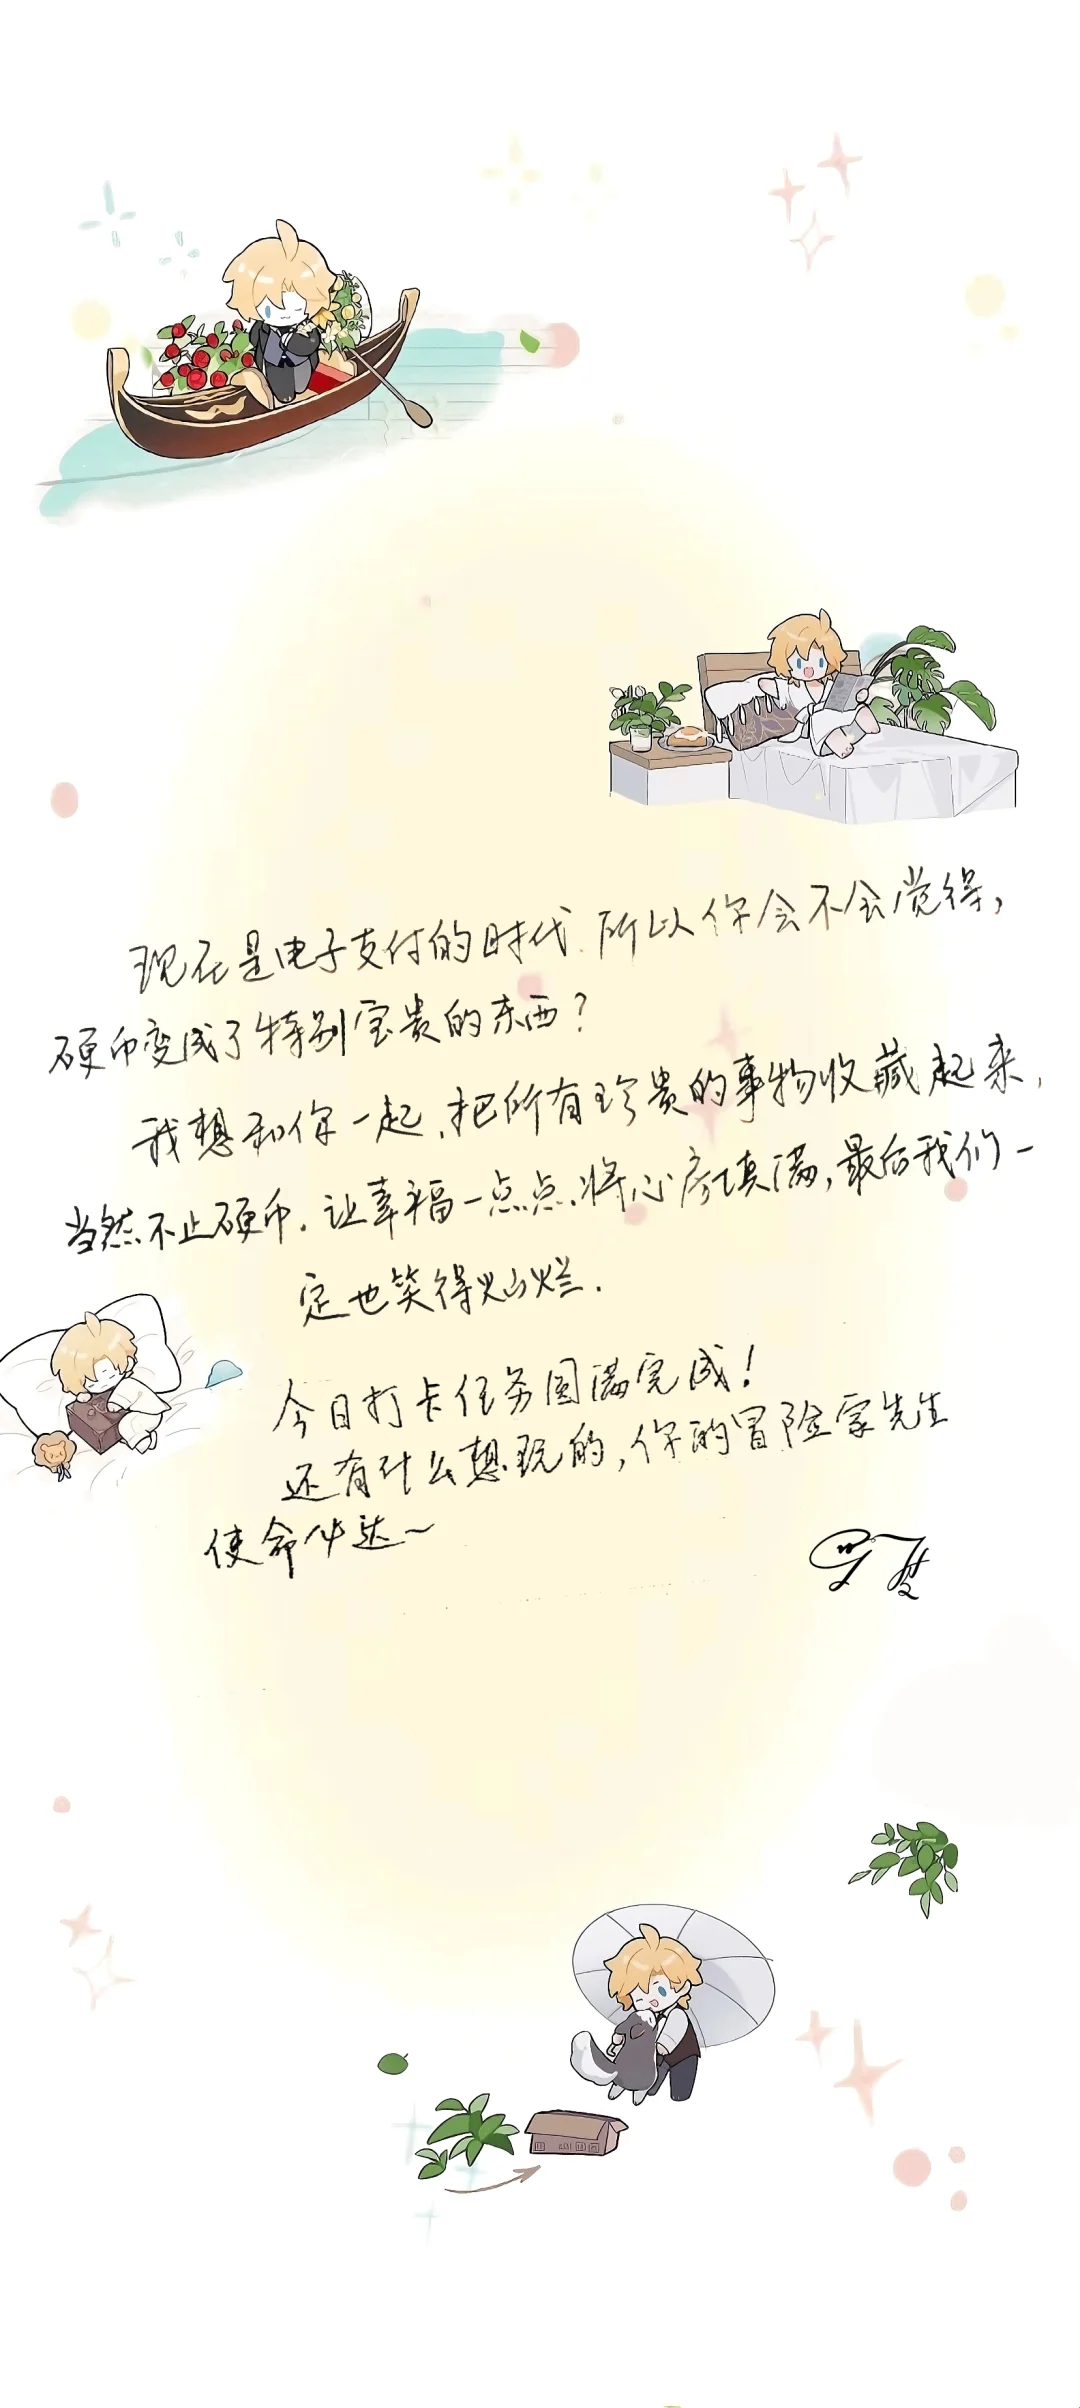 现在是电子支付的时代.所以你会不会觉得,
硬币变成了特别宝贵的东西?
我想和你一起,把所有珍贵的事物收藏起来,
当然不止硬币.让幸福一点点将心房填满,最后我们一
定也笑得灿烂.
今日打卡任务圆满完成!
还有什么想玩的,你的冒险家先生
使命必达~